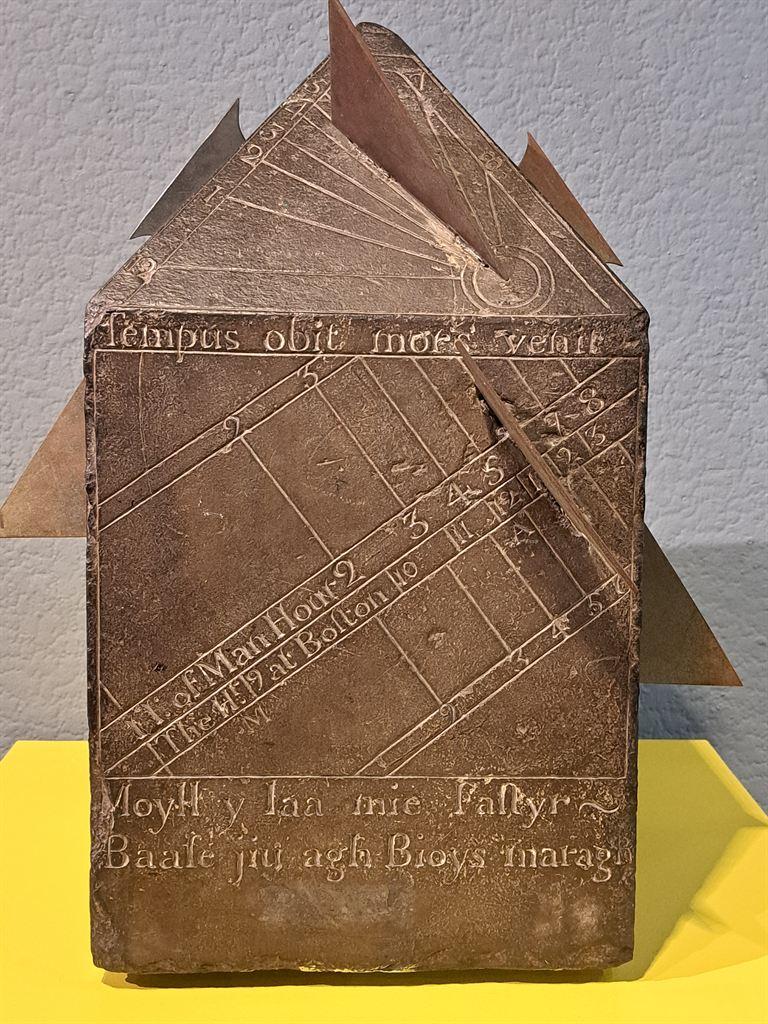 5
3
2
1
12
7
8
Tempus obit mors venit
9 3
H of Man Hour 2 3 4 5 7 8
The Hr 9 at Boſton 10 11 12 1 2 3
M A
2 3 4 5
Moyll y laa mie Faſtyr ~
Baaſe jiu agh Bioys maragh